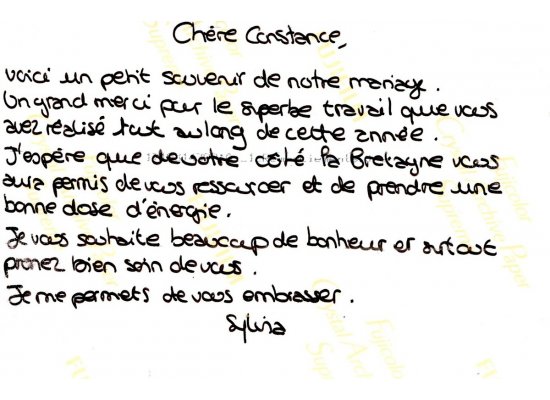 Chère Constance,
voici un petit souvenir de notre mariage.
Un grand merci pour le superbe travail que vous
avez réalisé tout au long de cette année.
J'espère que de votre côté la Bretagne vous
aura permis de vous ressourcer et de prendre une
bonne dose d'énergie.
Je vous souhaite beaucoup de bonheur et surtout
prenez bien soin de vous.
Je me permets de vous embrasser.
Sylvia